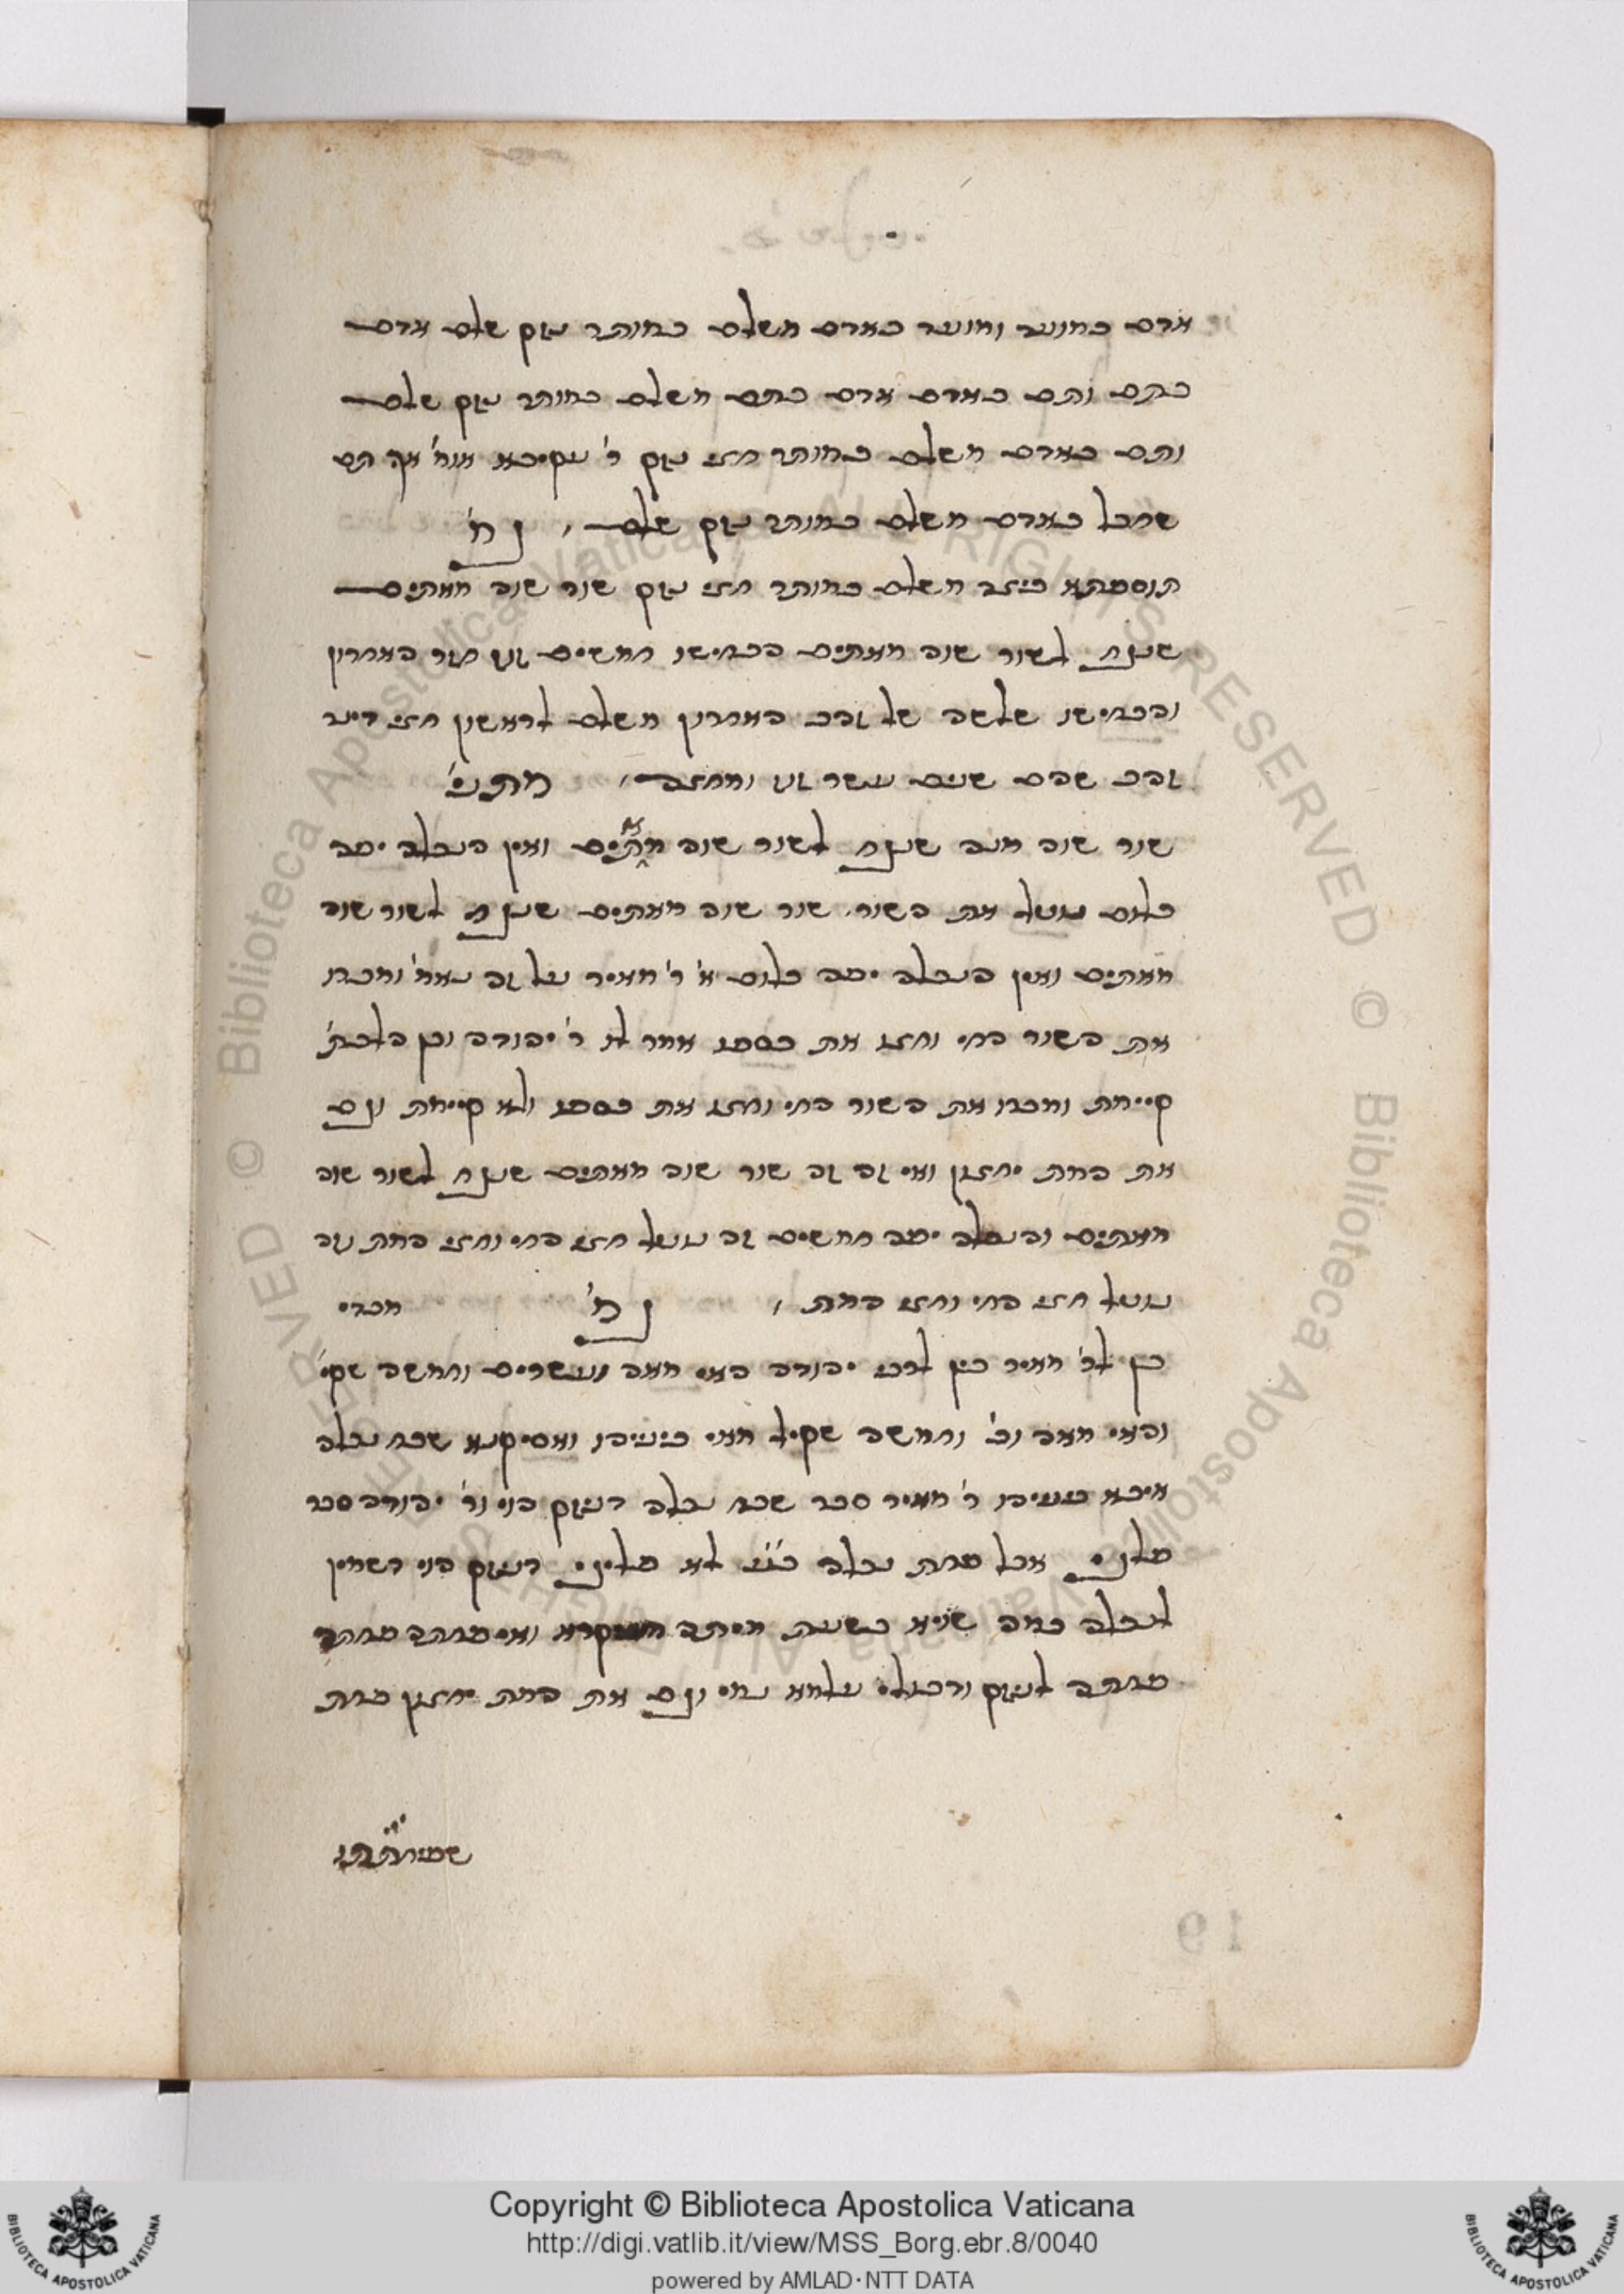 אדם במועד ומועד באדם משלם במותר נזק שלם אדם
בתם ותם באדם אדם בתם משלם במותר נזק שלם
ותם באדם משלם במותר חצי נזק ר' עקיבא אומ' אף תם
שחבל באדם משלם במותר נזק שלם
תוספתא כיצד משלם במותר חצי נזק שור שוה מאתים
שנגח לשור שוה מאתים הכחישו חמשים זוז חזר האחרון
והכחישו שלשה של זהב האחרון משלם לראשון חצי דינר
זהב שהם שנים עשר זוז ומחצה מתני'
שור שוה מנה שנגח לשור שוה מאתים ואין הנבלה יפה
כלום נוטל את השור שור שוה מאתים שנגח לשור שוה
מאתים ואין הנבלה יפה כלום א' ר' מאיר על זה נאמ' ומכרו
את השור החי וחצו את כספו אמר לו ר' יהודה וכן הלכת'
קיימת ומכרו את השור החי וחצו את כספו ולא קיימת וגם
את המת יחצון ואי זה זה שור שוה מאתים שנגח לשור שוה
מאתים והנבלה יפה חמשים זה נוטל חצי החי וחצי המת וזה
נוטל חצי החי וחצי המת גמ' מכדי
בין לר' מאיר בין לרבי יהודה האי מאה ועשרים וחמשה שקי'
והאי מאה וכ' וחמשה שקיל מאי ביניהו ואסיקנא שבח נבלה
איכא ביניהו ר' מאיר סבר שבח נבלה דניזק הוי ור' יהודה סבר
פלגי אבל פחת נבלה כ"ע לא פליגי דניזק הוי דשמין
לנבלה כמה שויא בשעת מיתה ואי פחתה פחתה
פחתה לניזק ודכולי עלמא מאי וגם את המת יחצון פחת
Copyright © Biblioteca Apostolica Vaticana
http://digi.vatlib.it/view/MSS_Borg.ebr.8/0040
powered by AMLAD·NTT DATA